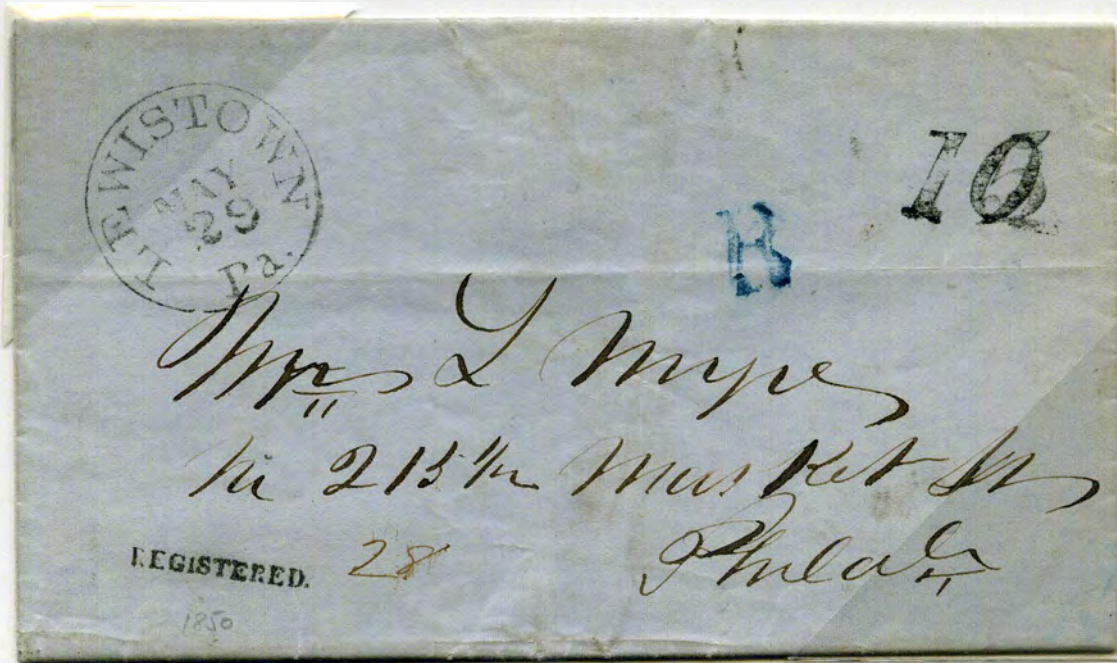 LEWISTOWN
MAY
29
Pa.
10
R
L
213 1/2 Market St
Philada
REGISTERED. 28
1850